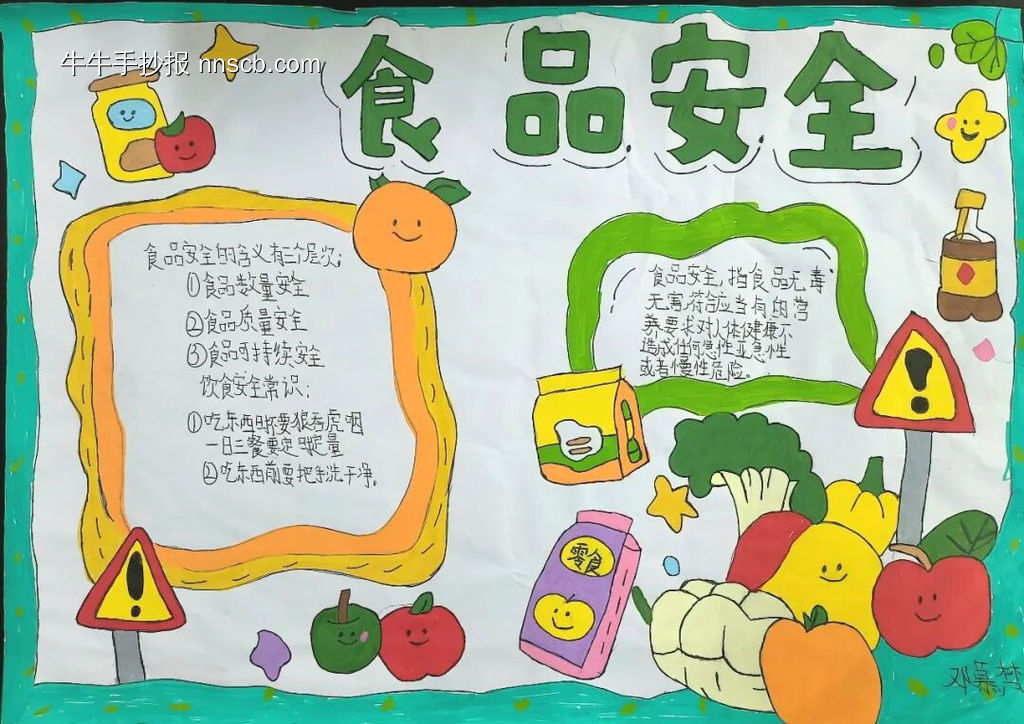 牛牛手抄报 nnscb.com
食品安全
食品安全的含义有三个层次:
①食品数量安全
②食品质量安全
③食品可持续安全
饮食安全常识:
①吃东西时不要狼吞虎咽
一日三餐要定时定量
②吃东西前要把手洗干净。
食品安全,指食品无毒
无害,符合应当有的营
养要求对人体健康不
造成任何急性亚急性
或者慢性危险。
零食
邓慕梦